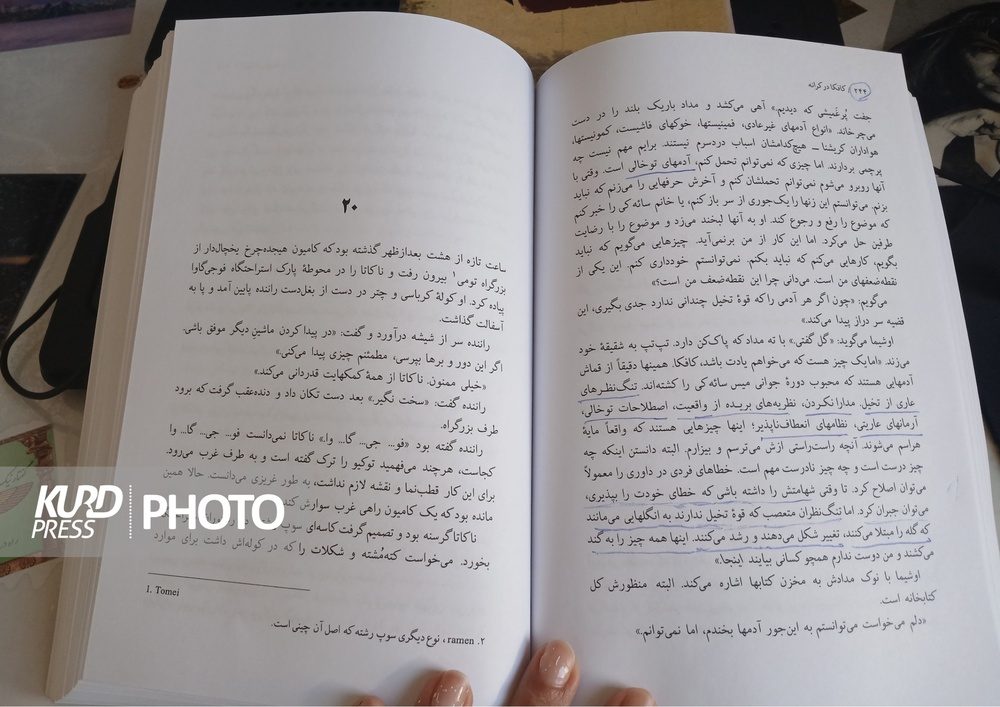 ۲۴۴ / کافکا در کرانه
جفت پُرغَمیشی که دیدیم.» آهی می‌کشد و مداد باریک بلند را در دست
می‌چرخاند. «انواع آدمهای غیرعادی، فمینیستها، خوکهای فاشیست، کمونیستها،
هواداران کریشنا — هیچ‌کدامشان اسباب دردسرم نیستند. برایم مهم نیست چه
پرچمی بردارند. اما چیزی که نمی‌توانم تحمل کنم، آدمهای توخالی است. وقتی با
آنها روبرو می‌شوم نمی‌توانم تحملشان کنم و آخرش حرفهایی را می‌زنم که نباید
بزنم. می‌توانستم این زنها را یک‌جوری از سر باز کنم، یا خانم سائه‌کی را خبر کنم
که موضوع را رفع و رجوع کند. او به آنها لبخند می‌زد و موضوع را با رضایت
طرفین حل می‌کرد. اما این کار از من برنمی‌آید. چیزهایی می‌گویم که نباید
بگویم، کارهایی می‌کنم که نباید بکنم. نمی‌توانستم خودداری کنم. این یکی از
نقطه‌ضعفهای من است. می‌دانی چرا این نقطه‌ضعف من است؟»
می‌گویم: «چون اگر هر آدمی را که قوهٔ تخیل چندانی ندارد جدی بگیری، این
قضیه سر دراز پیدا می‌کند.»
اوشیما می‌گوید: «گل گفتی.» با ته مداد که پاک‌کن دارد، تپ‌تپ به شقیقهٔ خود
می‌زند. «اما یک چیز هست که می‌خواهم یادت باشد، کافکا. همینها دقیقاً از قماش
آدمهایی هستند که محبوب دورهٔ جوانی میس سائه‌کی را کشته‌اند. تنگ‌نظرهای
عاری از تخیل. مدارا نکردن، نظریه‌های بریده از واقعیت، اصطلاحات توخالی،
آرمانهای عاریتی، نظامهای انعطاف‌ناپذیر؛ اینها چیزهایی هستند که واقعاً مایهٔ
هراسم می‌شوند. آنچه راست‌راستی ازش می‌ترسم و بیزارم. البته دانستن اینکه چه
چیز درست است و چه چیز نادرست مهم است. خطاهای فردی در داوری را معمولاً
می‌توان اصلاح کرد. تا وقتی شهامتش را داشته باشی که خطای خودت را بپذیری،
می‌توان جبران کرد. اما تنگ‌نظران متعصب که قوهٔ تخیل ندارند به انگلهایی می‌مانند
که گله را مبتلا می‌کنند، تغییر شکل می‌دهند و رشد می‌کنند. اینها همه چیز را به گند
می‌کشند و من دوست ندارم همچو کسانی بیایند اینجا.»
اوشیما با نوک مدادش به مخزن کتابها اشاره می‌کند. البته منظورش کل
کتابخانه است.
«دلم می‌خواست می‌توانستم به این‌جور آدمها بخندم، اما نمی‌توانم.»
۲۰
ساعت تازه از هشت بعدازظهر گذشته بود که کامیون هیجده‌چرخ یخچال‌دار از
بزرگراه تومی۱ بیرون رفت و ناکاتا را در محوطهٔ پارک استراحتگاه فوجی‌گاوا
پیاده کرد. او کولهٔ کرباسی و چتر در دست از بغل‌دست راننده پایین آمد و پا به
آسفالت گذاشت.
راننده سر از شیشه درآورد و گفت: «در پیدا کردن ماشینِ دیگر موفق باشی.
اگر این دور و برها بپرسی، مطمئنم چیزی پیدا می‌کنی.»
«خیلی ممنون. ناکاتا از همهٔ کمکهایت قدردانی می‌کند.»
راننده گفت: «سخت نگیر.» بعد دست تکان داد و دنده‌عقب گرفت که برود
طرف بزرگراه.
راننده گفته بود «فو... جی... گا... وا» ناکاتا نمی‌دانست فو... جی... گا... وا
کجاست، هرچند می‌فهمید توکیو را ترک گفته است و به طرف غرب می‌رود.
برای این کار قطب‌نما و نقشه لازم نداشت، به طور غریزی می‌دانست. حالا همین
مانده بود که یک کامیون راهی غرب سوارش کند.
ناکاتا گرسنه بود و تصمیم گرفت کاسه‌ای سوپ
بخورد. می‌خواست کته‌مُشته و شکلات را که در کوله‌اش داشت برای موارد
1. Tomei
۲. ramen، نوع دیگری سوپ رشته که اصل آن چینی است.
KURD PRESS
PHOTO